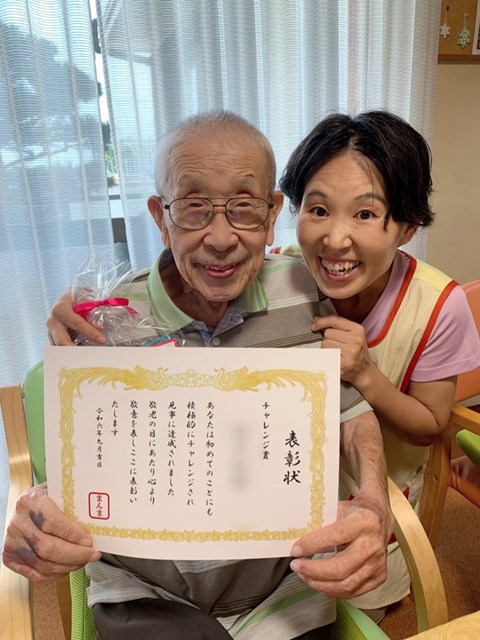 表彰状
チャレンジ賞
あなたは初めてのことにも
積極的にチャレンジされ
見事に達成されました
敬老の日にあたり心より
敬意を表しここに表彰い
たします
令和六年九月吉日